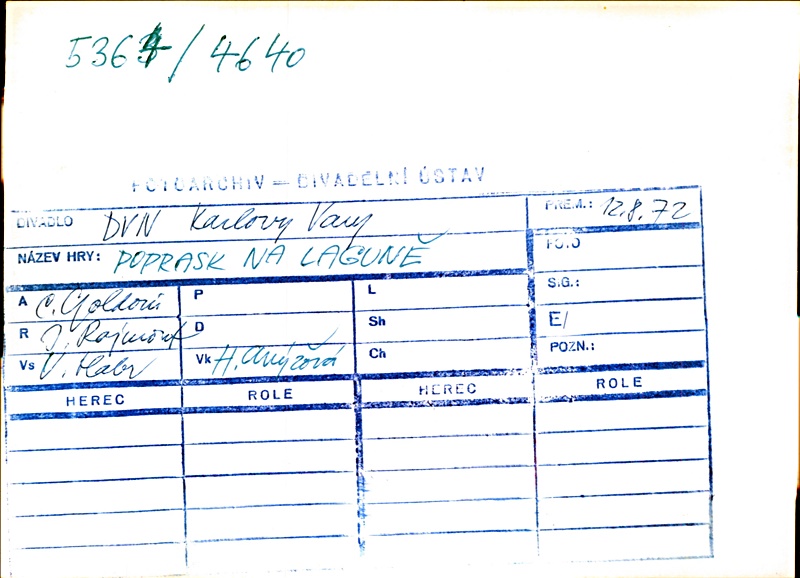 5364/4640
FOTOARCHIV — DIVADELNÍ ÚSTAV
DIVADLO DVN Karlovy Vary PREM.: 12.8.72
NÁZEV HRY: POPRASK NA LAGUNĚ FOTO
A C. Goldoni P L S.G.:
R J. Rajmont D Sh E/
Vs V. Habr Vk H. Anýžová Ch POZN.:
HEREC ROLE HEREC ROLE